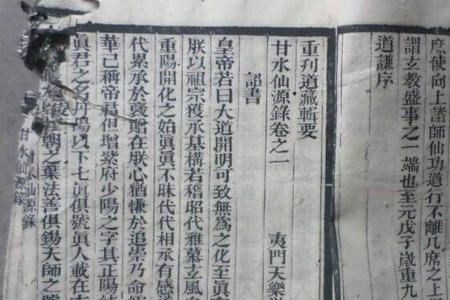 庶使向上諸師仙功道行不離几席之上
謂玄教盛事之一端也至元戊子歲重九
道謙序
重刊道藏輯要
甘水仙源錄卷之一
夷門天樂
詔書
皇帝若曰大道開明可致無爲之化至眞
朕以祖宗獲承基構若稽昭代雅慕玄風
重陽開化之始眞眞不昧代代相承有感
代累承於襃贈在朕心猶慊於追崇乃命
華已稱帝君但增紫府少陽之字其正陽
眞君之名丹陽以下七眞俱號眞人載在
朝之葉法善俱錫天師之
甘水仙源錄